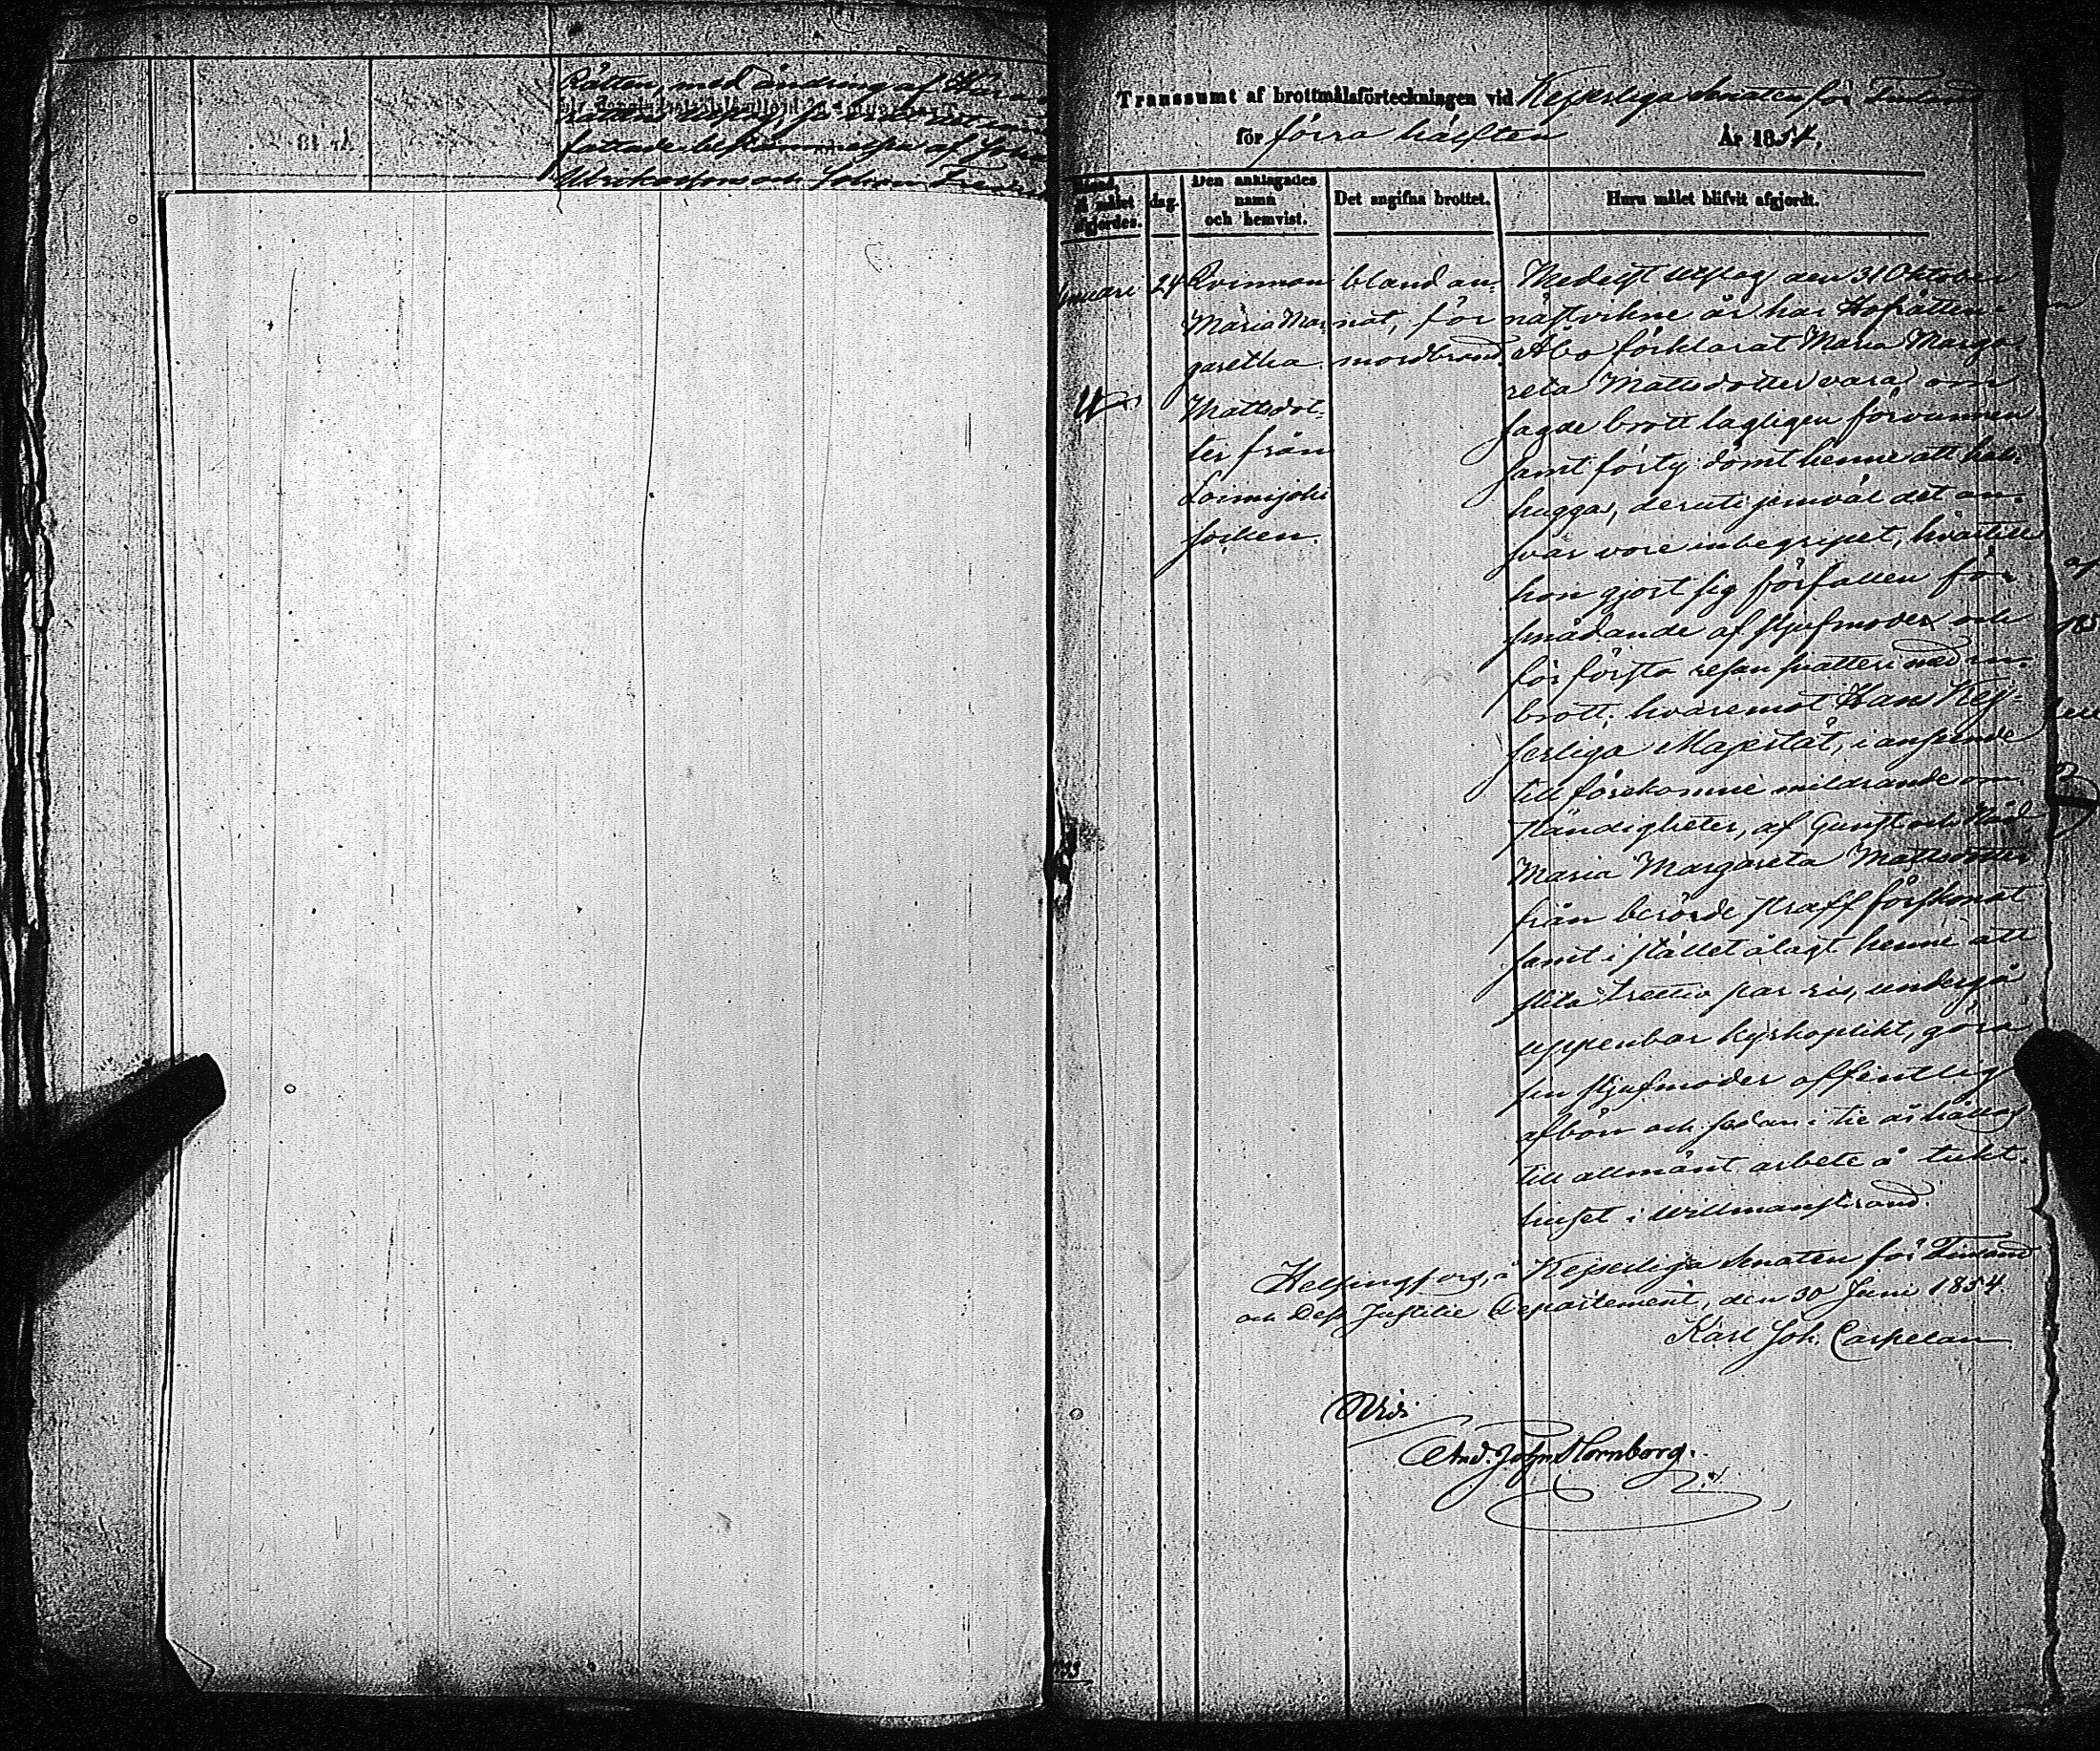 Rätten, med ändring af Hära
rättens utslag
fattade bestämmelsen af Joha
Ulriksson och Johan Fredri
Transsumt af brottmålsförteckningen vid Kejserliga Senaten för Finland
för förra hälften År 1854.
Månad, då målet afgjordes.
dag.
Den anklagades namn och hemvist.
Det angifna brottet.
Huru målet blifvit afgjordt.
Januari
24
Qvinnan
Maria Mar-
garetha
Mattsdot-
ter från
Loimijoki
socken.
bland an-
nat, för
mordbrand.
Medelst utslag den 31 Oktober
nästvikne år har Hofrätten i
Åbo förklarat Maria Marga-
reta Mattsdotter vara om
sagde brott lagligen förvunnen
samt förty dömt henne att hals-
huggas, deruti jemväl det an-
svar vore inbegripet, hvartill
hon gjort sig förfallen för
smädande af stjufmoder och
för första resan snatteri med in-
brott; hvaremot Hans Kej-
serliga Majestät, i anseende
till förekomne mildrande om-
ständigheter, af Gunst och Nåd,
Maria Margareta Mattsdotter
från berörde straff förskonat
samt i stället ålagt henne att
slita trettio par ris, undergå
uppenbar kyrkoplikt, göra
sin stjufmoder offentlig
afbön och sedan i tie år hållas
till allmänt arbete å tukt-
huset i Willmanstrand.
Helsingfors, å Kejserliga Senaten för Finland
och Dess Justitie Departement, den 30 Juni 1854.
Karl Joh. Carpelan
Vidi
And. John Hornborg.